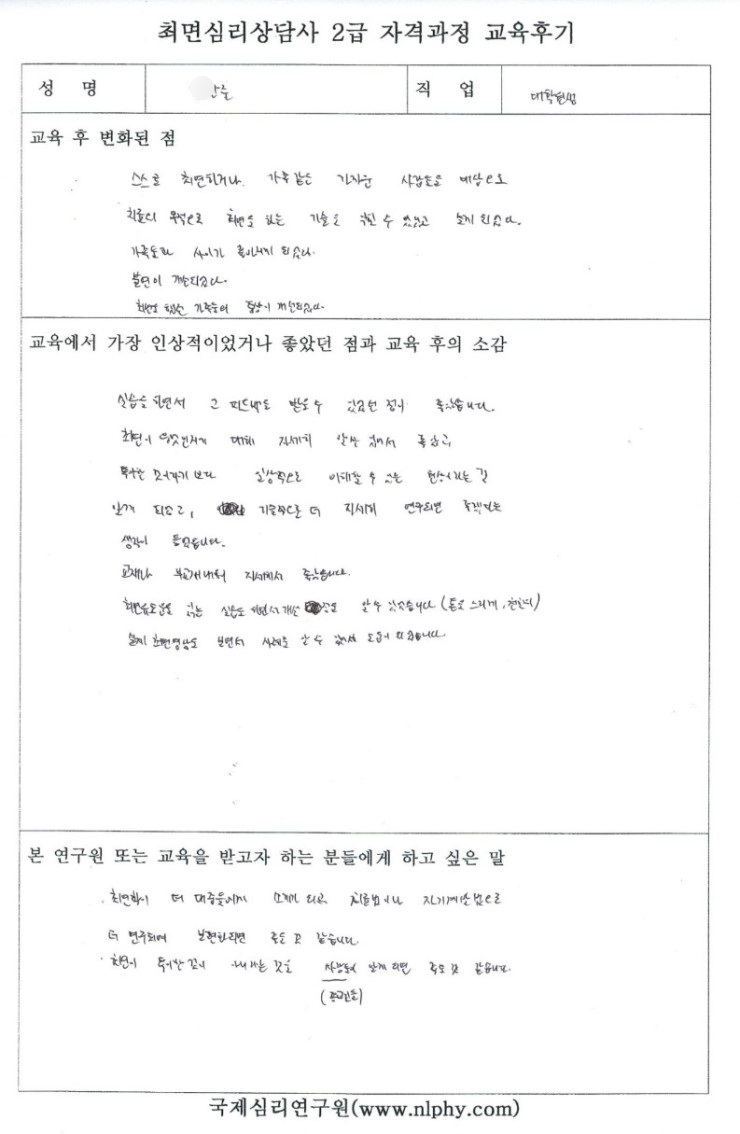 최면심리상담사 2급 자격과정 교육후기
성 명
직 업 대학원생
교육 후 변화된 점
스스로 최면되거나 가족같은 가까운 사람들을 대상으로
치료의 목적으로 최면을 하는 기술을 익힐 수 있었고 쓰게 되었다.
가족들과 사이가 좋아지게 되었다.
불면이 개선되었다.
최면을 했던 가족들의 증상이 개선되었다.
교육에서 가장 인상적이었거나 좋았던 점과 교육 후의 소감
실습을 하면서 그 피드백도 받을 수 있었던 점이 좋았습니다.
최면이 무엇인지에 대해 자세히 알 수 있어서 좋았고
특수한 것이라기 보다 일상적으로 이해할 수 있는 현상이라는 걸
알게 되었고, 기술적으로 더 자세히 연구되면 좋겠다는
생각이 들었습니다.
교재나 부교재까지 자세해서 좋았습니다.
최면유도문을 읽는 실습도 하면서 개선 알 수 있었습니다 (톤은 느리게, 천천히)
실제 최면영상도 보면서 사례를 알 수 있어서 도움이 되었습니다.
본 연구원 또는 교육을 받고자 하는 분들에게 하고 싶은 말
· 최면학이 더 대중들에게 소개가 되고 치료법이나 자기계발법으로
더 연구되어 보편화되면 좋을 것 같습니다.
· 최면이 특이한 것이 아니라는 것을 사람들이 알게 되면 좋을 것 같습니다.
국제심리연구원(www.nlphy.com)